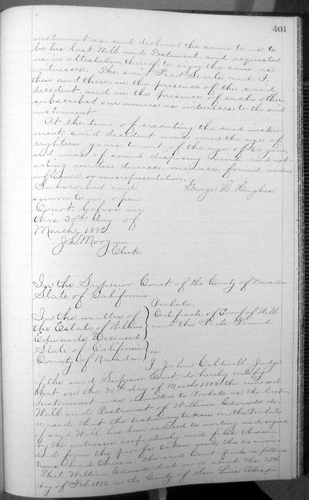 401
instrument as and declared the same to us to
be his last Will and Testament and requested
us in attestation thereof to sign the same as
witnesses. The said and I
then and there, in the presence of the said
decedent, and in the presence of each other
subscribed our names as witnesses to the said
instrument.
At the time of executing the said instru-
ment, said decedent was over the age of
eighteen years to wit of the age of years
and was of sound disposing mind and not
acting under duress, menace, fraud, undue
influence or misrepresentation.
Subscribed and George D.
sworn to in open
Court before me
this 30th day of
March 1892
J.L. Morgan
Clerk
In the Superior Court of the County of Nevada
State of California.
Probate.
In the matter of
the Estate of William
Edwards Deceased
Certificate of Proof of Will
and the Facts Found.
State of California
County of Nevada. ss
I, John Caldwell Judge
of the said Superior Court do hereby certify
that on the 30 day of March 1892 the annexed
instrument was admitted to Probate as the last
Will and Testament of William Edwards de-
ceased, that the testimony taken on the Probate
of said Will has been reduced to writing and signed
by the witnesses respectively and filed therein
and from the proofs taken and the examina-
tion had therein the said Court finds as follows
That William Edwards died on or about the
day of Feb. 1892 in the County of San Luis Obispo